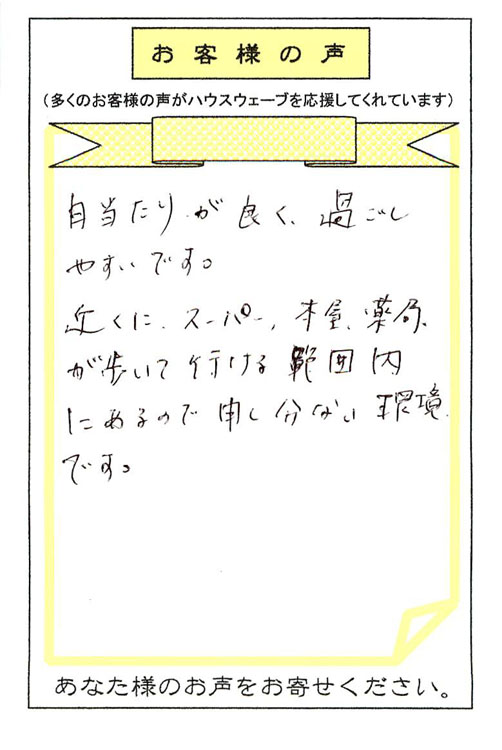 お客様の声
(多くのお客様の声がハウスウェーブを応援してくれています)
日当たりが良く、過ごし
やすいです。
近くに、スーパー、本屋、薬局、
が歩いて行ける範囲内
にあるので申し分ない環境
です。
あなた様のお声をお寄せください。